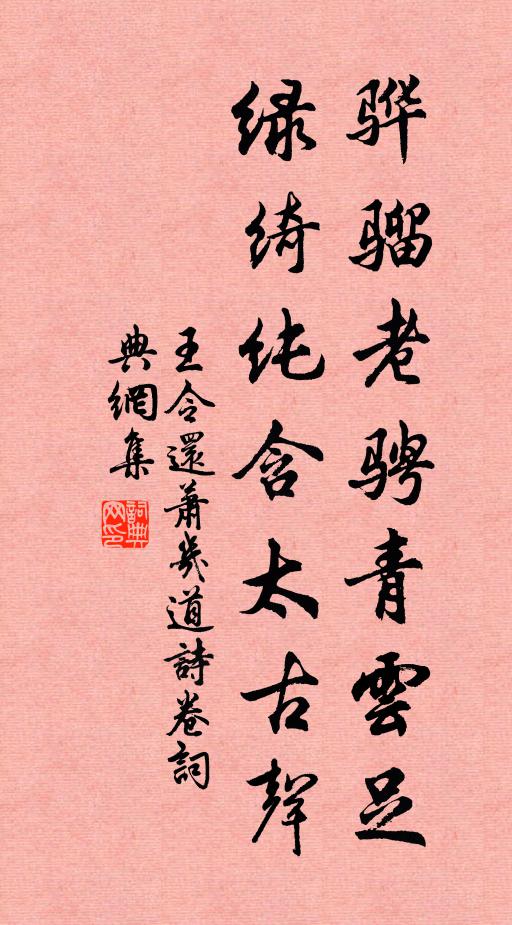 骅骝老骋青雲足
绿绮纯含太古聲
王令還蕭幾道詩卷詞
典網集
詞典
网印